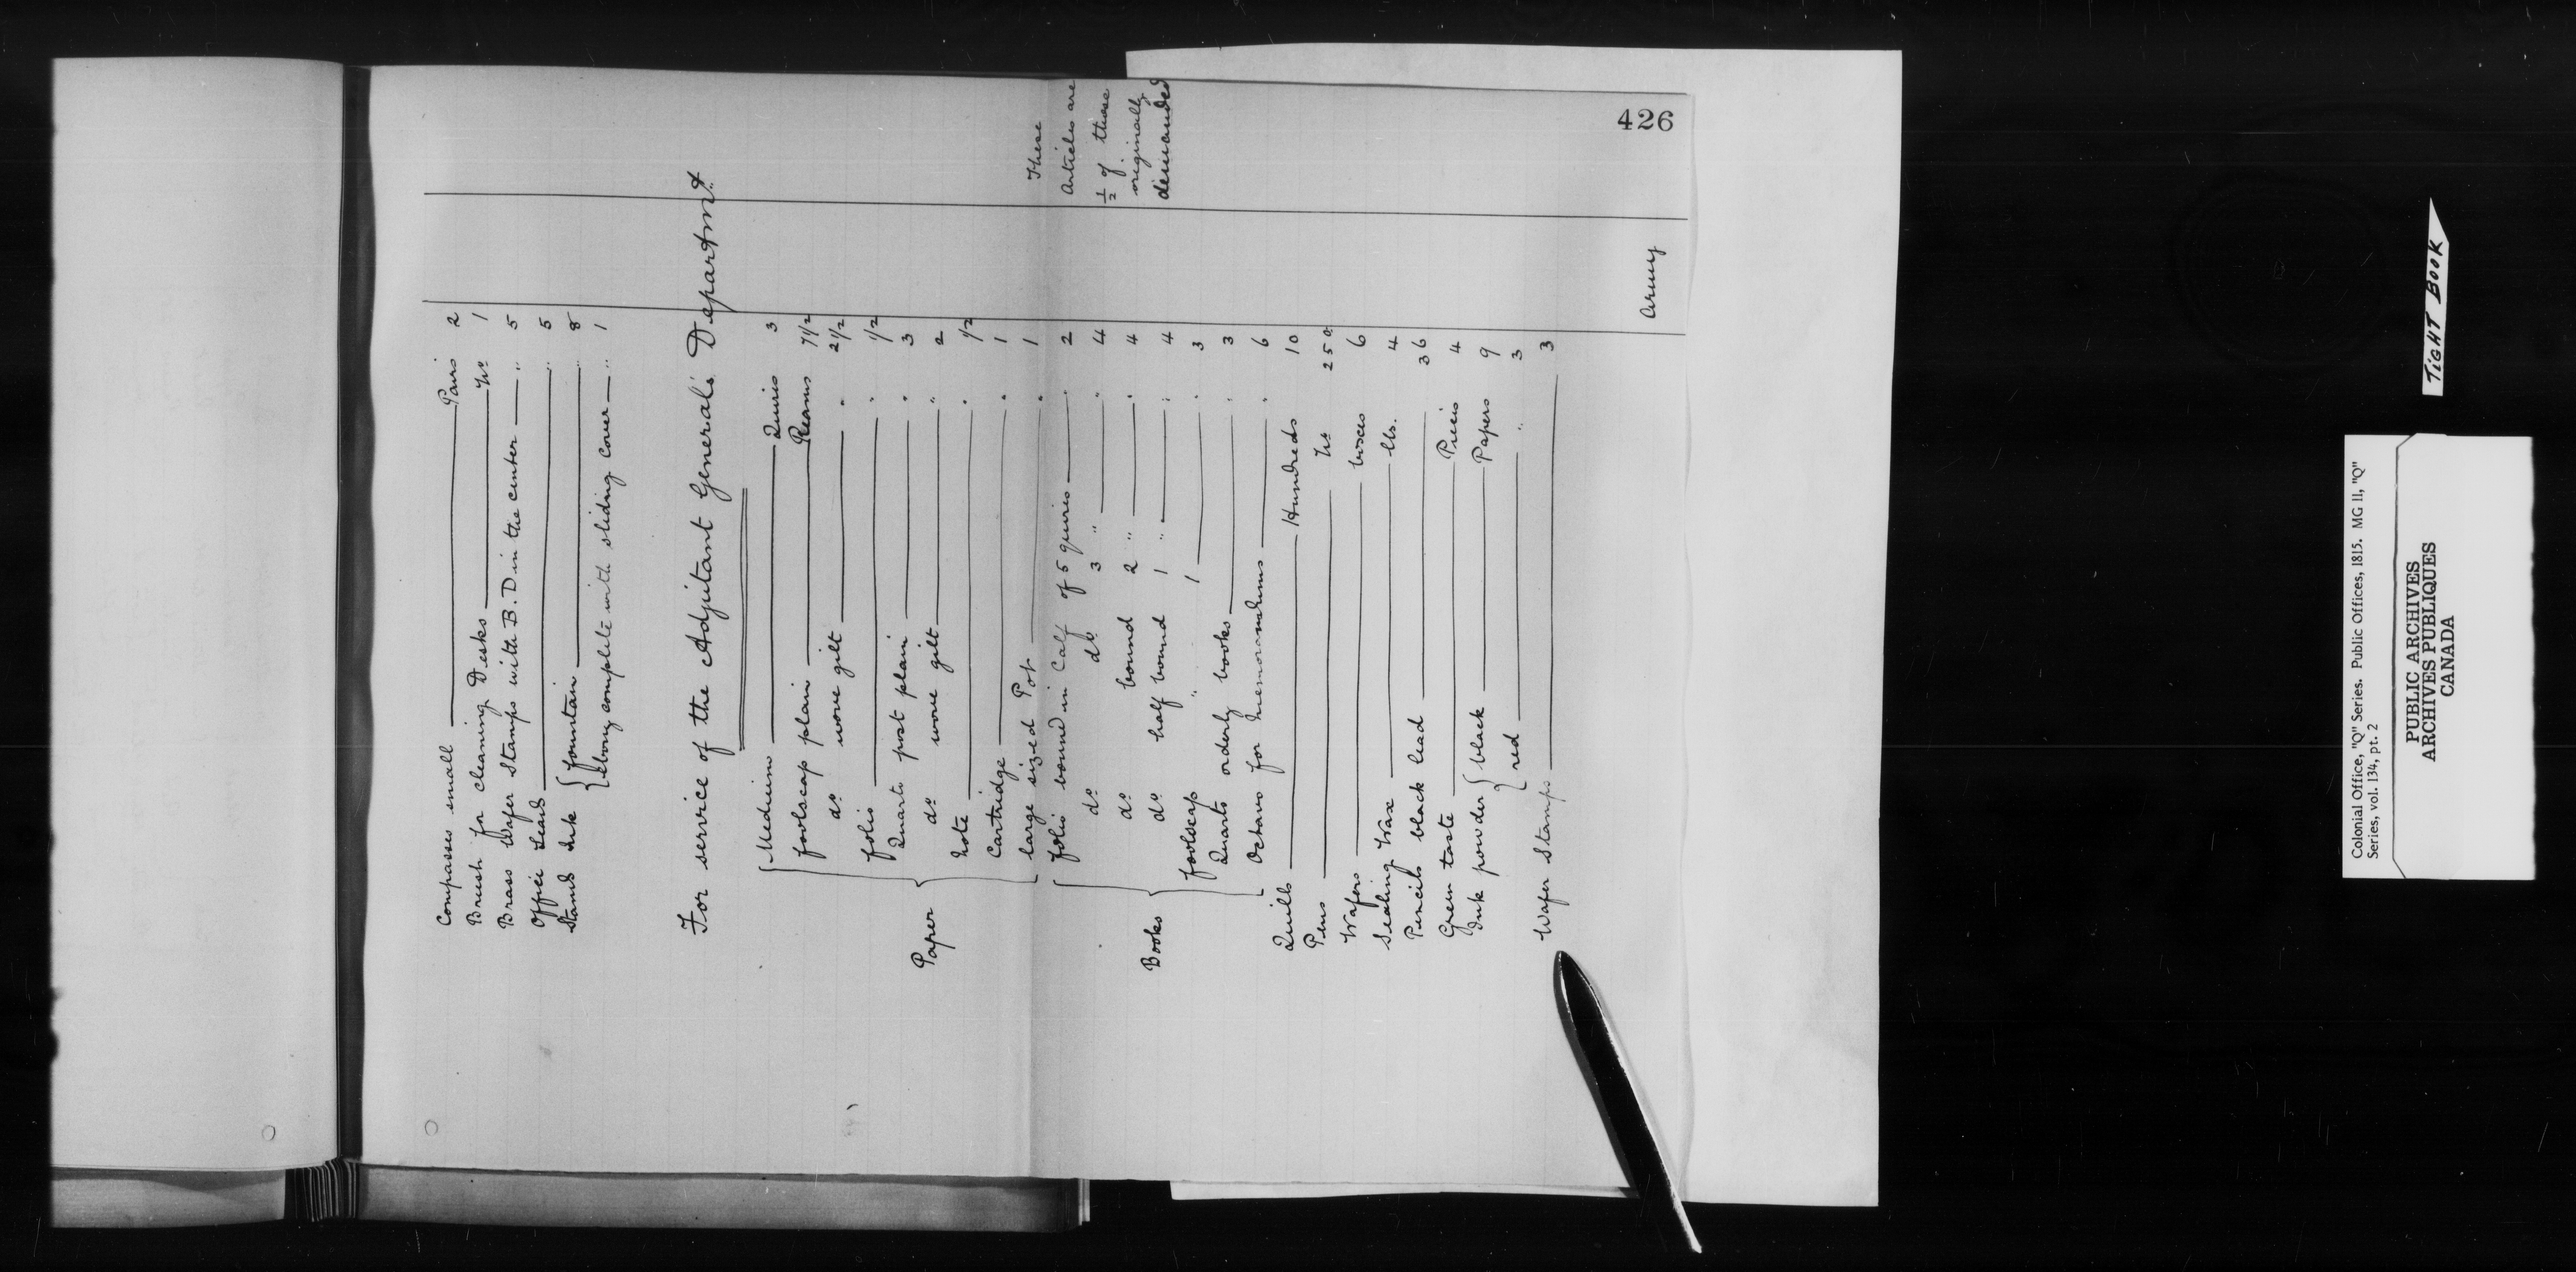 Compasses small — Pairs 2
Brush for cleaning Desks — No 1
Brass Wafer Stamps with B.D in the center — " 5
Office Seals — " 5
Stands Ink { fountain — " 8
{ Ebony complete with sliding cover — " 1
For service of the Adjutant General's Departmt.
Paper { Medium — Quires 3
foolscap plain — Reams 7 1/2
do wove gilt — " 2 1/2
folio — " 1/2
Quarto post plain — " 3
do wove gilt — " 2
Note — " 1/2
Cartridge — " 1
large sized Pot — " 1
Books { folio bound in Calf of 5 quires — " 2
do do 3 " — " 4
do bound 2 " — " 4
do half bound 1 " — " 4
foolscap " 1 — " 3
Quarto orderly books — " 3
Octavo for Memorandums — " 6
These
Articles are
1/2 of those
originally
demanded
Quills — Hundreds 10
Pens — No 250
Wafers — boxes 6
Sealing Wax — lbs. 4
Pencils black lead — 36
Green taste — Pieces 4
Ink powder { black — Papers 9
{ red — " 3
Wafer Stamps — 3
Army
426
TIGHT BOOK
Colonial Office, "Q" Series. Public Offices, 1815. MG 11, "Q"
Series, vol. 134, pt. 2
PUBLIC ARCHIVES
ARCHIVES PUBLIQUES
CANADA